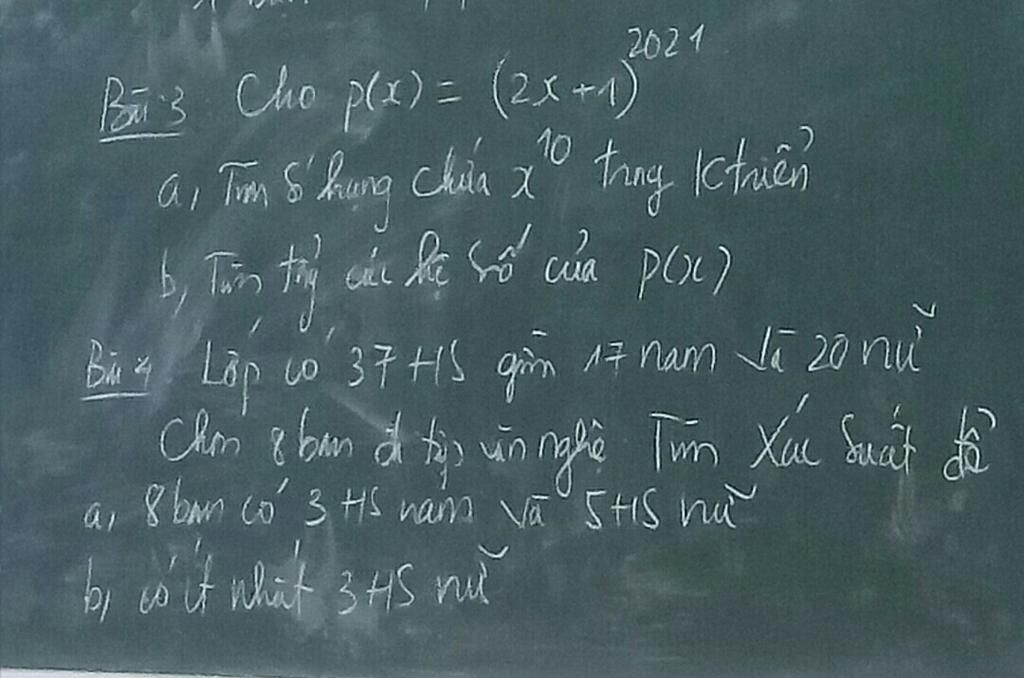 Bài 3 Cho p(x) = (2x+1)^2021
a, Tìm số hạng chứa x^10 trong Ktriển
b, Tìm tổng các hệ số của p(x)
Bài 4 Lớp có 37 HS gồm 17 nam và 20 nữ
Chọn 8 bạn đi tập văn nghệ Tìm Xác suất để
a, 8 bạn có 3 HS nam và 5 HS nữ
b, có ít nhất 3 HS nữ